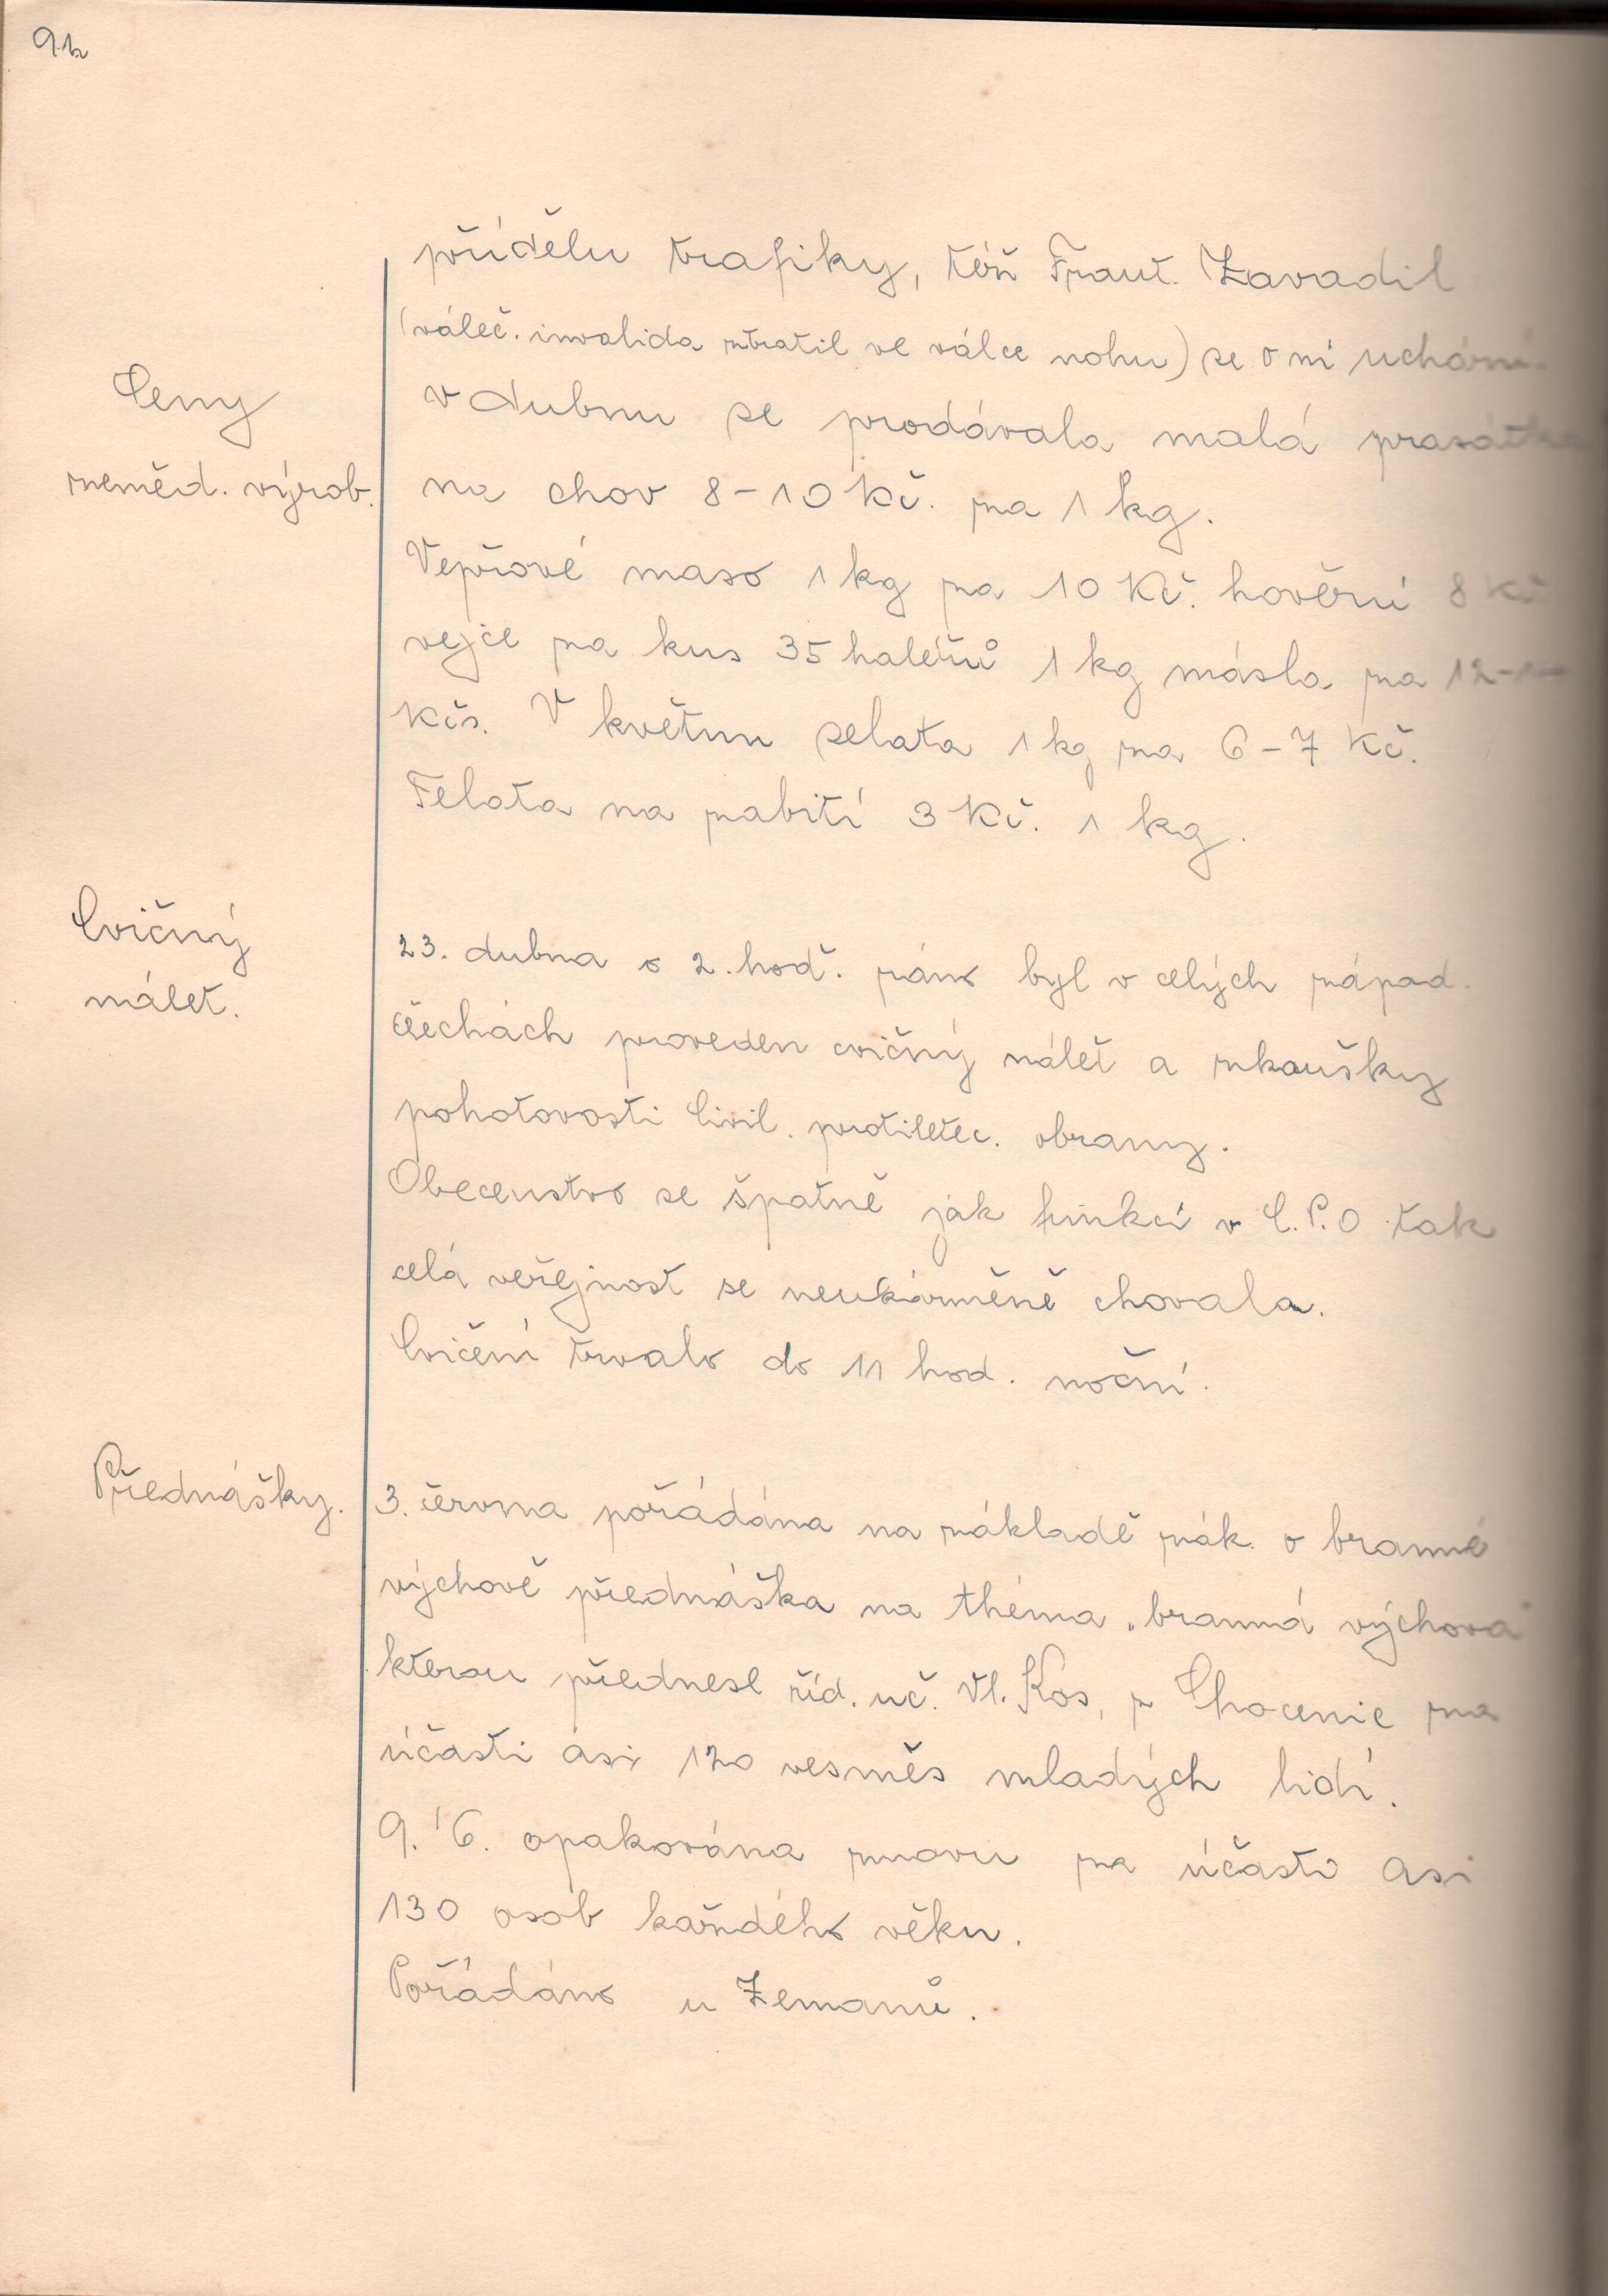 92
přídělu trafiky, též Frant. Zavadil
(váleč. invalida ztratil ve válce nohu) se o ni
Ceny
v dubnu se prodávala malá prasátka
zeměd. výrob.
na chov 8-10 Kč. za 1 kg.
Vepřové maso 1 kg za 10 Kč. hovězí 8 Kč
vejce za kus 35 haléřů 1 kg másla za
Kčs. V květnu selata 1 kg za 6-7 Kč.
Telata na zabití 3 Kč. 1 kg.
Cvičný
nálet.
23. dubna o 2. hod. ráno byl v celých západ.
čechách proveden cvičný nálet a zkoušky
pohotovosti Civil. protiletec. obrany.
Obecenstvo se špatně jak funkcí v C.P.O tak
celá veřejnost se neukázněně chovala.
Cvičení trvalo do 11 hod. noční.
Přednášky.
3. června pořádána na základě zák. o branné
výchově přednáška na théma „branná výchova"
kterou přednesl říd. uč. Vl. Kos, z Chocenic za
účasti asi 120 vesměs mladých lidí.
9. 6. opakována znovu za účasti asi
130 osob každého věku.
Pořádáno u Zemanů.